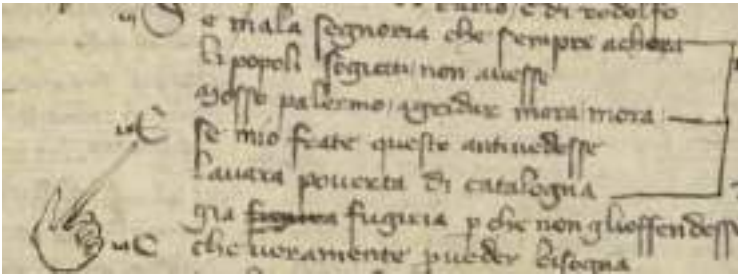 carlo / e di rodolfo
S e mala segnoria che sempre achora
li popoli sogietti / non auesse
mosso palermo / agridar mora / mora
E se mio frate questo antiuedesse
lauara pouerta di catalogna
gia fugiria p che non glioffendess
che ueramente pueder bisogna